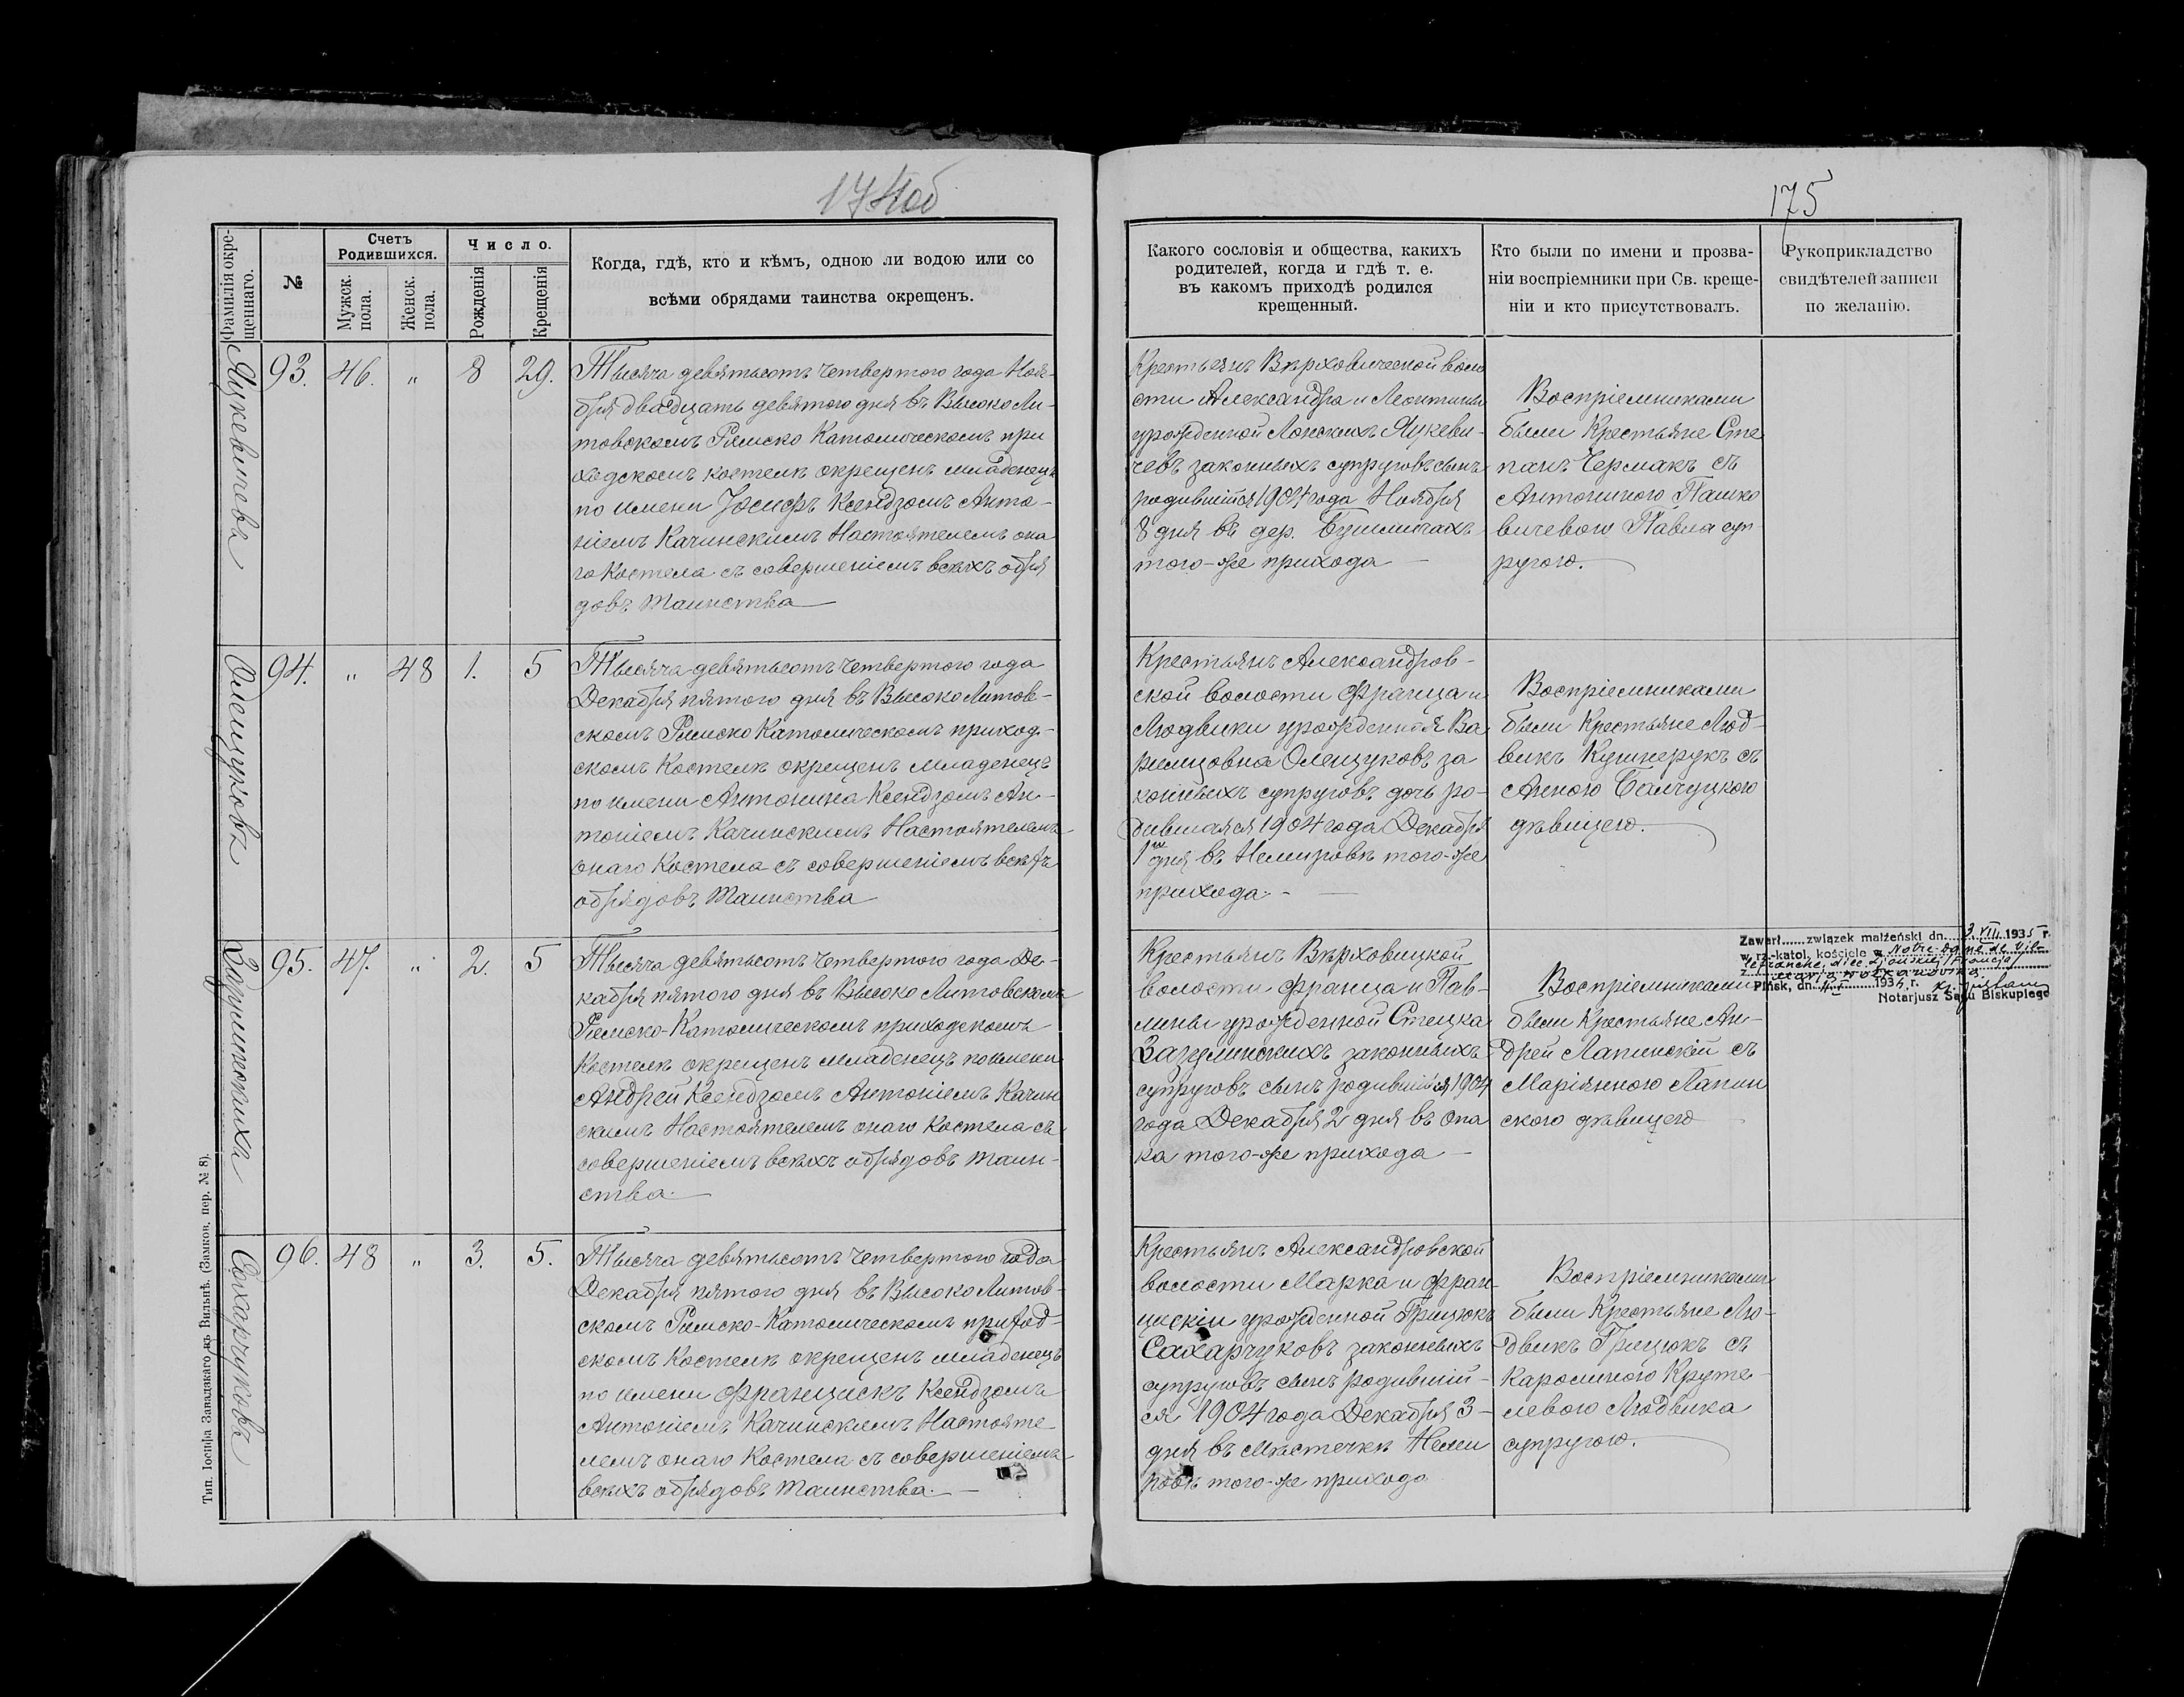 174об
175
Фамилія окрещеннаго.
№
Счетъ Родившихся.
Мужск. пола.
Женск. пола.
Число.
Рожденія
Крещенія
Когда, гдѣ, кто и кѣмъ, одною ли водою или со
всѣми обрядами таинства окрещенъ.
Какого сословія и общества, какихъ
родителей, когда и гдѣ т. е.
въ какомъ приходѣ родился
крещенный.
Кто были по имени и прозва-
ніи воспріемники при Св. креще-
ніи и кто присутствовалъ.
Рукоприкладство
свидѣтелей записи
по желанію.
Яцкевичевъ
93. 46. „ 8 29.
Тысяча девятьсотъ четвертого года Ноя-
бря двадцать девятого дня въ Высоко Ли-
товскомъ Римско Католическомъ при
ходскомъ костелѣ окрещенъ младенецъ
по имени Іосифъ Ксендзомъ Анто-
ніемъ Качинскимъ Настоятелемъ она
го Костела съ совершеніемъ всѣхъ обря
довъ Таинства
Крестьянъ Верховической воло
сти Александра и Леонтины
урожденной Лонскихъ Яцкеви-
чевъ законныхъ супруговъ сынъ
родившійся 1904 года Ноября
8 дня въ дер.
того-же прихода
Воспріемниками
были Крестьяне Сте
панъ Чермакъ съ
Антониною Пашко
вичевою Павла суп
ругою.
Олещуковъ
94. „ 48 1. 5
Тысяча девятьсотъ четвертого года
Декабря пятого дня въ Высоко Литов-
скомъ Римско Католическомъ приход-
скомъ Костелѣ окрещенъ младенецъ
по имени Антонина Ксендзомъ Ан-
тоніемъ Качинскимъ Настоятелемъ
онаго Костела съ совершеніемъ всѣхъ
обрядовъ Таинства
Крестьянъ Александров-
ской волости Франца и
Людвики урожденной Ва
Олещуковъ за
конныхъ супруговъ дочь ро-
дившаяся 1904 года Декабря
1го дня въ Немировѣ того-же
прихода.
Воспріемниками
были Крестьяне Люд-
викъ Кушнерукъ съ
Анною
дѣвицею.
95. 47. „ 2. 5
Тысяча девятьсотъ четвертого года Де-
кабря пятого дня въ Высоко Литовскомъ
Римско-Католическомъ приходскомъ
Костелѣ окрещенъ младенецъ по имени
Андрей Ксендзомъ Антоніемъ Качин
скимъ Настоятелемъ онаго Костела съ
совершеніемъ всѣхъ обрядовъ Таин-
ства.
Крестьянъ Верховицкой
волости Франца и Пав-
лины урожденной Стецка
законныхъ
супруговъ сынъ родившійся 1904
года Декабря 2 дня въ Опа
ка того-же прихода
Воспріемниками
были Крестьяне Ан-
дрей Лапинскій съ
Маріянною Лапин
скою дѣвицею
Zawarł...... związek małżeński dn. 3 VIII 1935 r.
w rz.-katol. kościele w Notre-Dame de Vil-
lefranche, diec. (Francja)
z
Pińsk, dn. 193 r.
Notarjusz Sądu Biskupiego
Сахарчуковъ
96. 48 „ 3. 5.
Тысяча девятьсотъ четвертого года
Декабря пятого дня въ Высоко Литов-
скомъ Римско-Католическомъ приход-
скомъ Костелѣ окрещенъ младенецъ
по имени Францискъ Ксендзомъ
Антоніемъ Качинскимъ Настояте-
лемъ онаго Костела съ совершеніемъ
всѣхъ обрядовъ Таинства.
Крестьянъ Александровской
волости Марка и Фран-
цискіи урожденной Грицюкъ
Сахарчуковъ законныхъ
супруговъ сынъ родившій-
ся 1904 года Декабря 3-
дня въ Мѣстечкѣ Неми
ровѣ того-же прихода
Воспріемниками
были Крестьяне Лю-
двикъ Грицюкъ съ
Каролиною Круте-
левою Людвика
супругою.
Тип. Іосифа Завадзкаго въ Вильнѣ. (Замков. пер. № 8).